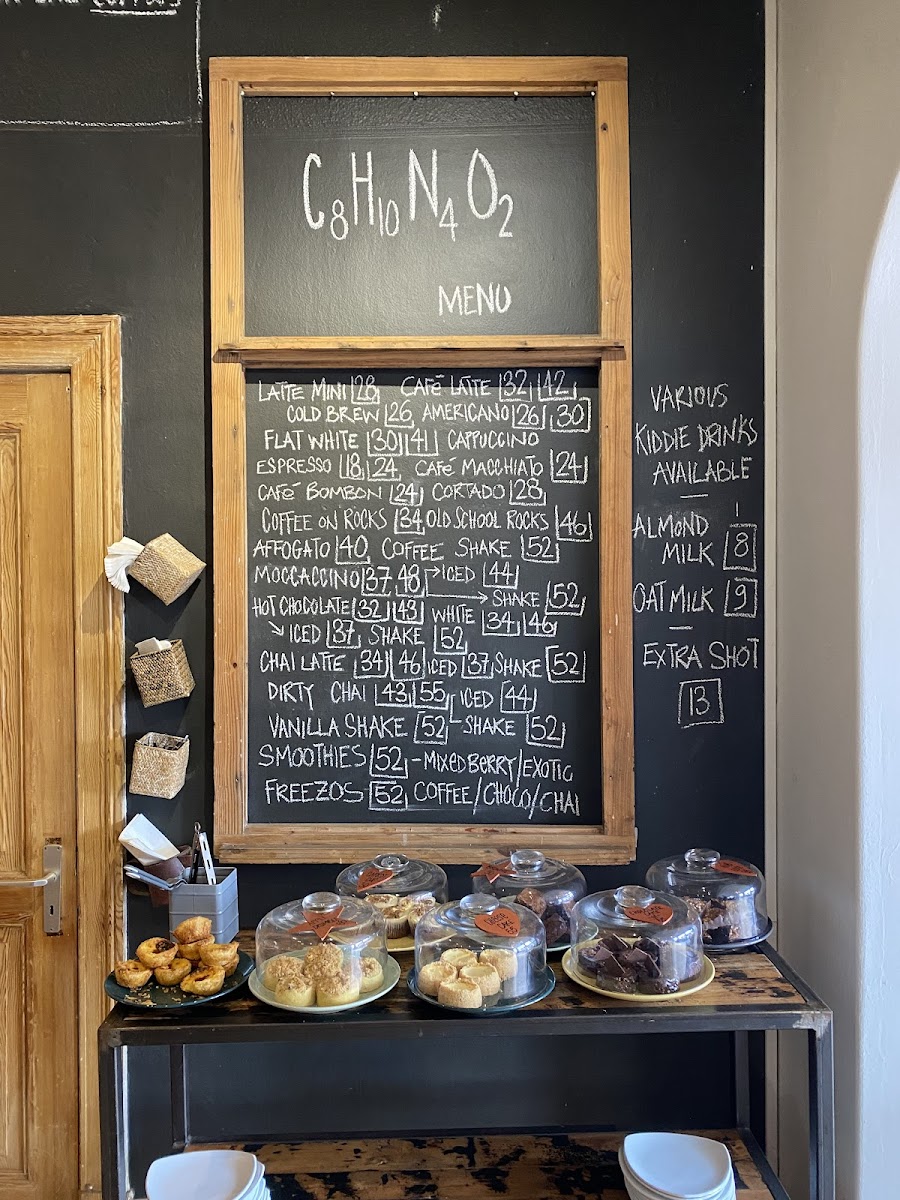 C8H10N4O2
MENU
LATTE MINI 28 CAFé LATTE 32 42
COLD BREW 26 AMERICANO 26 30
FLAT WHITE 30 41 CAPPUCCINO
ESPRESSO 18 24 CAFé MACCHIATO 24
CAFé BOMBON 24 CORTADO 28
COFFEE ON ROCKS 34 OLD SCHOOL ROCKS 46
AFFOGATO 40 COFFEE SHAKE 52
MOCCACCINO 37 48 → ICED 44
→ SHAKE 52
HOT CHOCOLATE 32 43 WHITE 34 46
↘ ICED 37 SHAKE 52
CHAI LATTE 34 46 ICED 37 SHAKE 52
DIRTY CHAI 43 55 ICED 44
VANILLA SHAKE 52 SHAKE 52
SMOOTHIES 52 - MIXED BERRY/EXOTIC
FREEZOS 52 COFFEE/CHOCO/CHAI
VARIOUS
KIDDIE DRINKS
AVAILABLE
ALMOND
MILK 8
OAT MILK 9
EXTRA SHOT
13